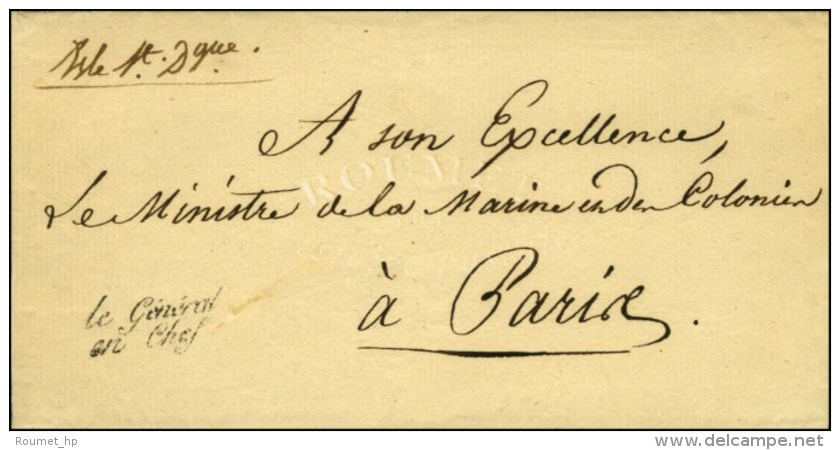 Isle St. Dgue.
A son Excellence,
Le Ministre de la Marine et des Colonies
à Paris.
le Général
en Chef
ROUMET
Roumet_hp
delcampe.net